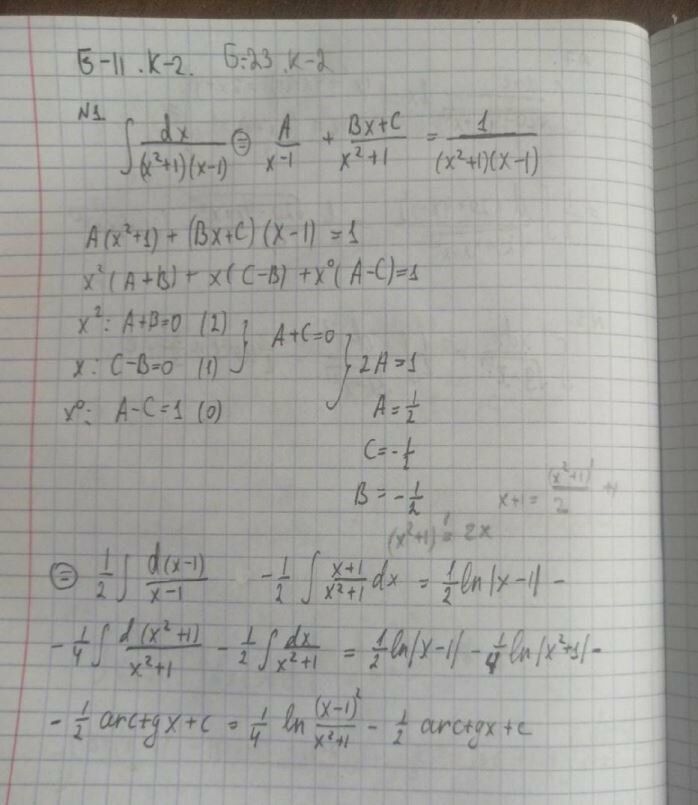 Б-11. К-2. Б-23. К-2
№1
∫ dx/((x²+1)(x-1)) ⊜ A/(x-1) + (Bx+C)/(x²+1) = 1/((x²+1)(x-1))
A(x²+1) + (Bx+C)(x-1) = 1
x²(A+B) + x(C-B) + x⁰(A-C)=1
x²: A+B=0 (2) } A+C=0
x: C-B=0 (1) } 2A=1
x⁰: A-C=1 (0)
A=1/2
C=-1/2
B=-1/2
x+1 = (x²+1)'/2 +1
(x²+1)' = 2x
⊜ 1/2 ∫ d(x-1)/(x-1) -1/2 ∫ (x+1)/(x²+1) dx = 1/2 ln|x-1| -
- 1/4 ∫ d(x²+1)/(x²+1) - 1/2 ∫ dx/(x²+1) = 1/2 ln|x-1| - 1/4 ln|x²+1| -
- 1/2 arctgx+c = 1/4 ln (x-1)²/(x²+1) - 1/2 arctgx+c